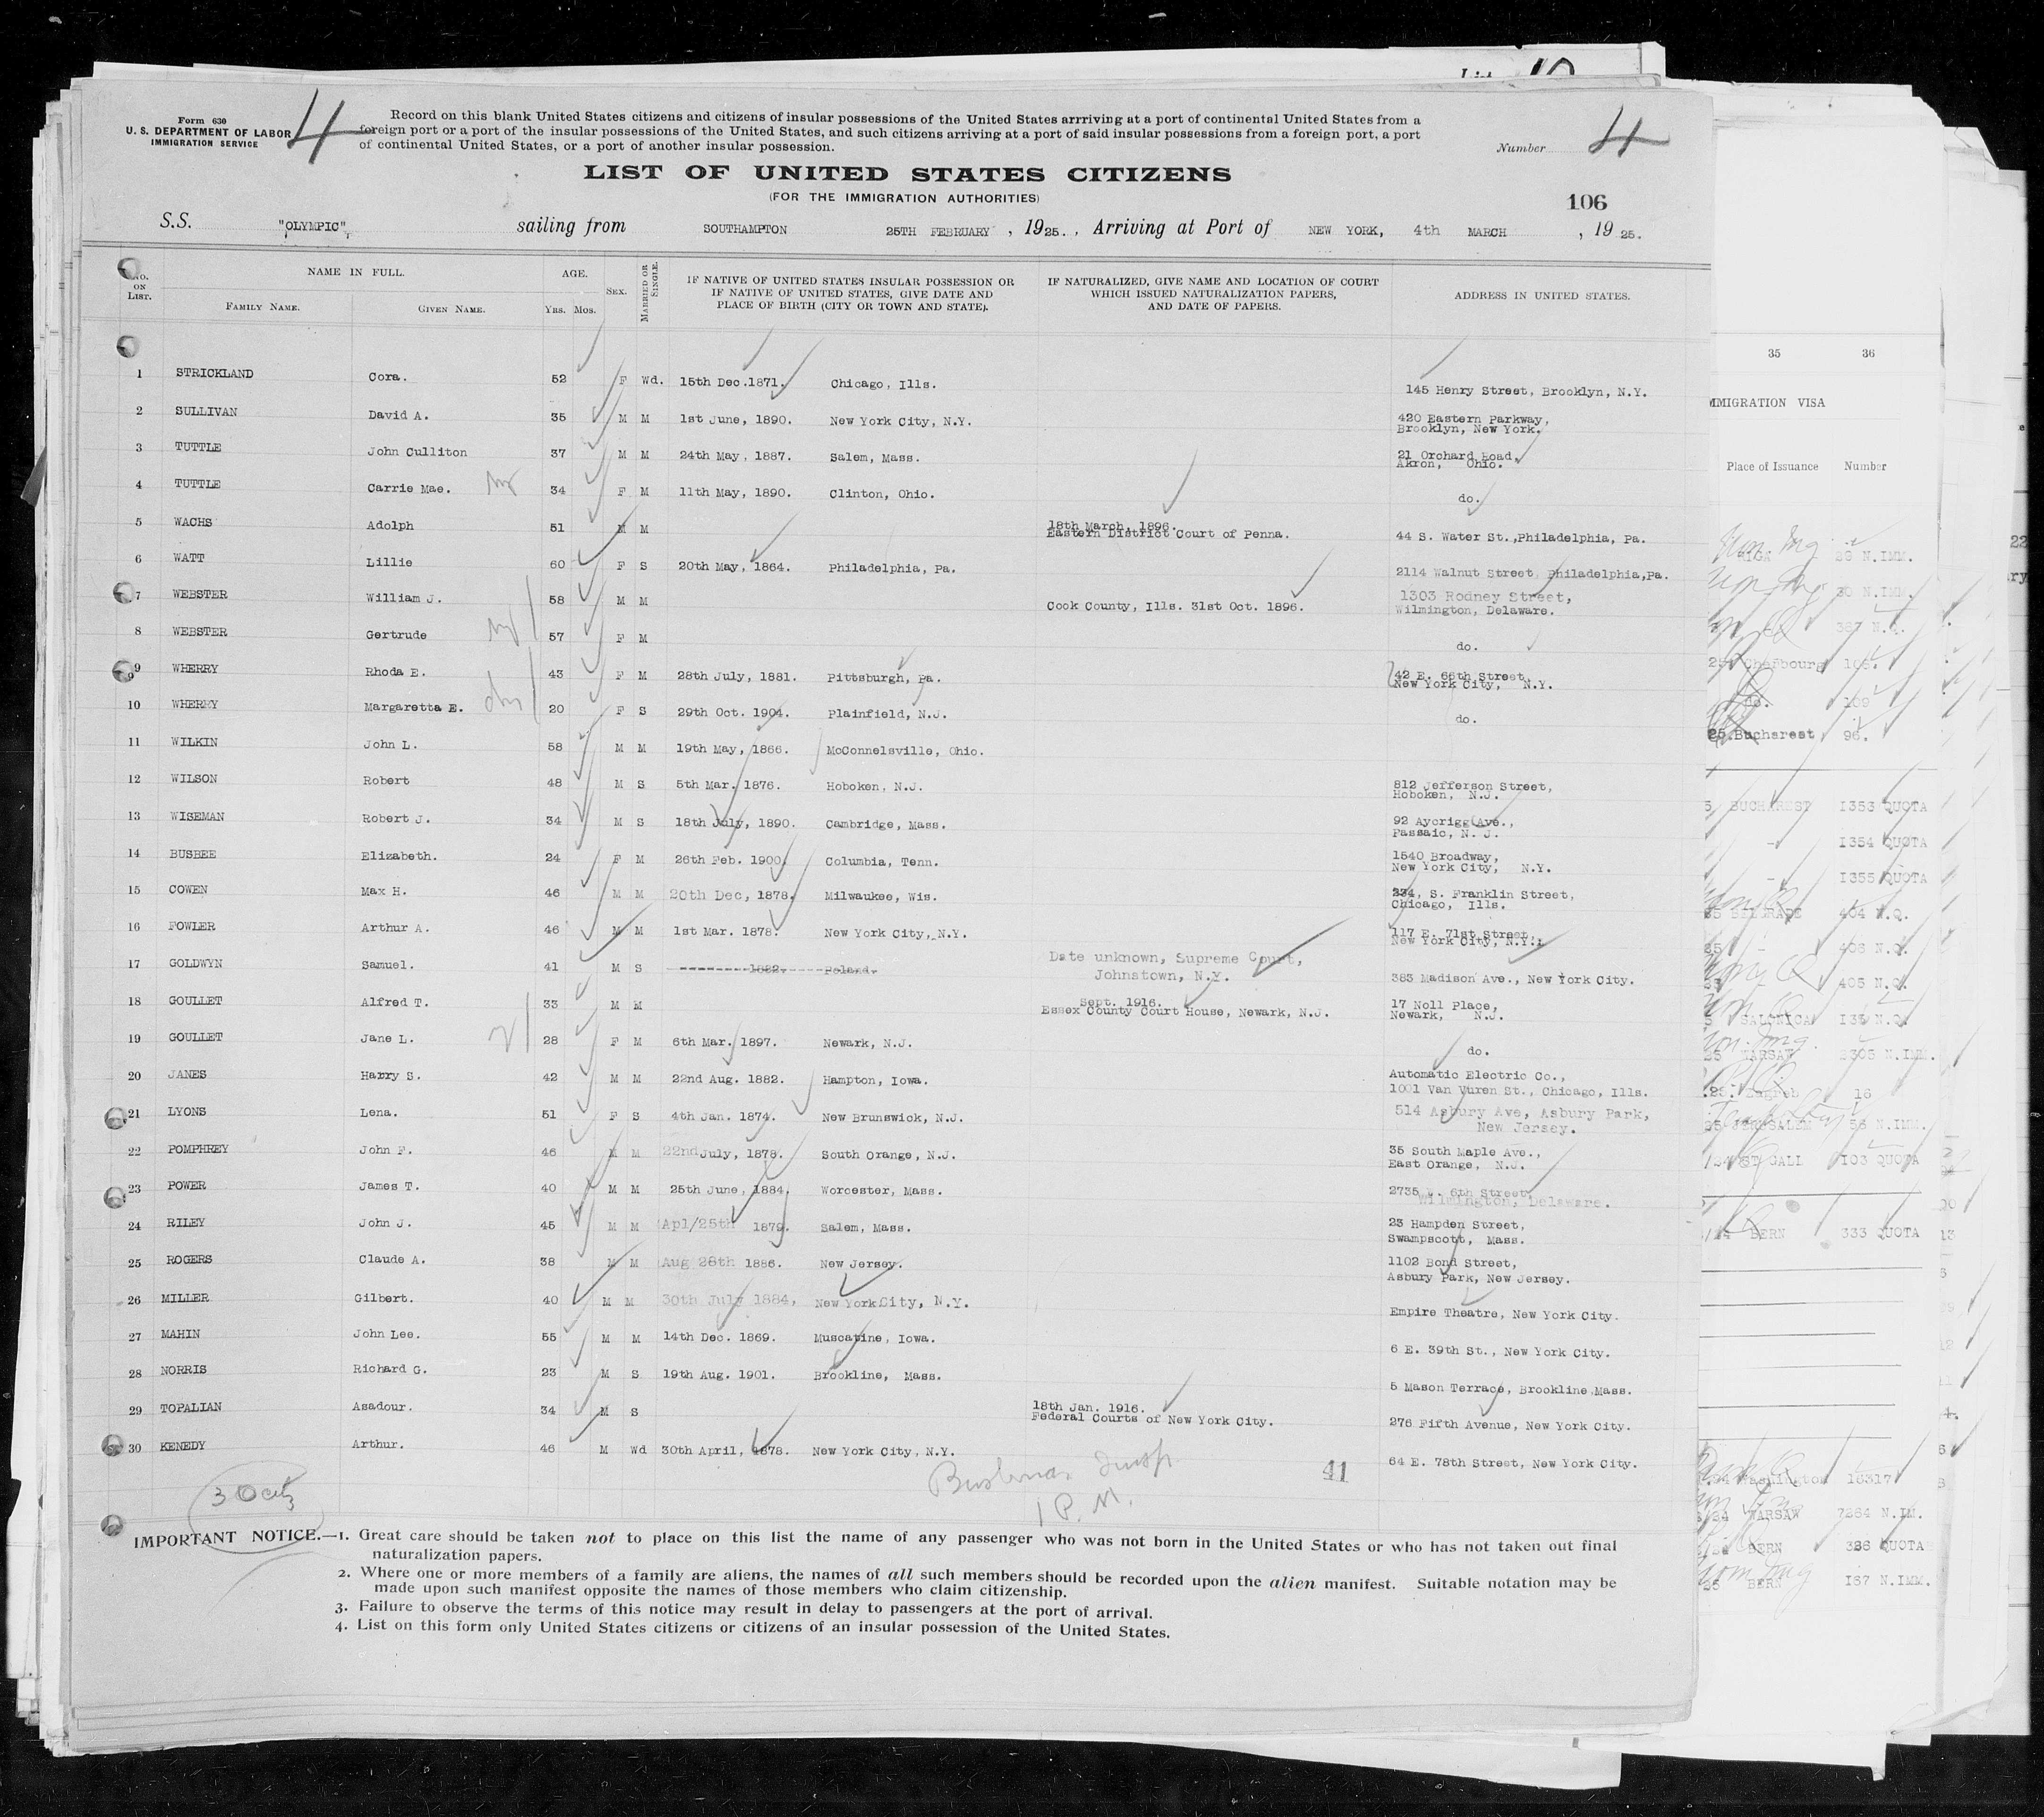 Form 630
U. S. DEPARTMENT OF LABOR
IMMIGRATION SERVICE
4
Record on this blank United States citizens and citizens of insular possessions of the United States arrriving at a port of continental United States from a
foreign port or a port of the insular possessions of the United States, and such citizens arriving at a port of said insular possessions from a foreign port, a port
of continental United States, or a port of another insular possession.
Number 4
LIST OF UNITED STATES CITIZENS
(FOR THE IMMIGRATION AUTHORITIES)
106
S.S. "OLYMPIC", sailing from SOUTHAMPTON 25TH FEBRUARY , 1925. , Arriving at Port of NEW YORK, 4th MARCH , 1925.
No. ON LIST. NAME IN FULL. FAMILY NAME. GIVEN NAME. AGE. YRS. MOS. SEX. MARRIED OR SINGLE. IF NATIVE OF UNITED STATES INSULAR POSSESSION OR IF NATIVE OF UNITED STATES, GIVE DATE AND PLACE OF BIRTH (CITY OR TOWN AND STATE). IF NATURALIZED, GIVE NAME AND LOCATION OF COURT WHICH ISSUED NATURALIZATION PAPERS, AND DATE OF PAPERS. ADDRESS IN UNITED STATES.
1 STRICKLAND Cora. 52 F Wd. 15th Dec.1871. Chicago, Ills. 145 Henry Street, Brooklyn, N.Y.
2 SULLIVAN David A. 35 M M 1st June, 1890. New York City, N.Y. 420 Eastern Parkway, Brooklyn, New York.
3 TUTTLE John Culliton 37 M M 24th May, 1887. Salem, Mass. 21 Orchard Road, Akron, Ohio.
4 TUTTLE Carrie Mae. 34 F M 11th May, 1890. Clinton, Ohio. do.
5 WACHS Adolph 51 M M 18th March, 1896. Eastern District Court of Penna. 44 S. Water St.,Philadelphia, Pa.
6 WATT Lillie 60 F S 20th May, 1864. Philadelphia, Pa. 2114 Walnut Street, Philadelphia,Pa.
7 WEBSTER William J. 58 M M Cook County, Ills. 31st Oct. 1896. 1303 Rodney Street, Wilmington, Delaware.
8 WEBSTER Gertrude 57 F M do.
9 WHERRY Rhoda E. 43 F M 28th July, 1881. Pittsburgh, Pa. 42 E. 66th Street, New York City, N.Y.
10 WHERRY Margaretta E. 20 F S 29th Oct. 1904. Plainfield, N.J. do.
11 WILKIN John L. 58 M M 19th May, 1866. McConnelsville, Ohio.
12 WILSON Robert 48 M S 5th Mar. 1876. Hoboken, N.J. 812 Jefferson Street, Hoboken, N.J.
13 WISEMAN Robert J. 34 M S 18th July, 1890. Cambridge, Mass. 92 Aycrigg Ave., Passaic, N. J.
14 BUSBEE Elizabeth. 24 F M 26th Feb. 1900. Columbia, Tenn. 1540 Broadway, New York City, N.Y.
15 COWEN Max H. 46 M M 20th Dec, 1878. Milwaukee, Wis. 234, S. Franklin Street, Chicago, Ills.
16 FOWLER Arthur A. 46 M M 1st Mar. 1878. New York City, N.Y. 117 E. 71st Street, New York City, N.Y.
17 GOLDWYN Samuel. 41 M S 1882. Poland. Date unknown, Supreme Court, Johnstown, N.Y. 383 Madison Ave., New York City.
18 GOULLET Alfred T. 33 M M Sept. 1916. Essex County Court House, Newark, N.J. 17 Noll Place, Newark, N.J.
19 GOULLET Jane L. 28 F M 6th Mar. 1897. Newark, N.J. do.
20 JANES Harry S. 42 M M 22nd Aug. 1882. Hampton, Iowa. Automatic Electric Co., 1001 Van Vuren St., Chicago, Ills.
21 LYONS Lena. 51 F S 4th Jan. 1874. New Brunswick, N.J. 514 Asbury Ave, Asbury Park, New Jersey.
22 POMPHREY John F. 46 M M 22nd July, 1878. South Orange, N.J. 35 South Maple Ave., East Orange, N.J.
23 POWER James T. 40 M M 25th June, 1884. Worcester, Mass. 2735 6th Street, Wilmington, Delaware.
24 RILEY John J. 45 M M Apl/25th 1879. Salem, Mass. 23 Hampden Street, Swampscott, Mass.
25 ROGERS Claude A. 38 M M Aug 28th 1886. New Jersey. 1102 Bond Street, Asbury Park, New Jersey.
26 MILLER Gilbert. 40 M M 30th July 1884, New York City, N.Y. Empire Theatre, New York City.
27 MAHIN John Lee. 55 M M 14th Dec. 1869. Muscatine, Iowa. 6 E. 39th St., New York City.
28 NORRIS Richard G. 23 M S 19th Aug. 1901. Brookline, Mass. 5 Mason Terrace, Brookline,Mass.
29 TOPALIAN Asadour. 34 M S 18th Jan. 1916. Federal Courts of New York City. 276 Fifth Avenue, New York City.
30 KENEDY Arthur. 46 M Wd 30th April, 1878. New York City, N.Y. 64 E. 78th Street, New York City.
1 P.M.
41
IMPORTANT NOTICE.—1. Great care should be taken not to place on this list the name of any passenger who was not born in the United States or who has not taken out final
naturalization papers.
2. Where one or more members of a family are aliens, the names of all such members should be recorded upon the alien manifest. Suitable notation may be
made upon such manifest opposite the names of those members who claim citizenship.
3. Failure to observe the terms of this notice may result in delay to passengers at the port of arrival.
4. List on this form only United States citizens or citizens of an insular possession of the United States.
35 36
IMMIGRATION VISA
Place of Issuance Number
RIGA N.IMM.
30 N.IMM.
109
Bucharest, 96.
BUCHAREST 1353 QUOTA
1354 QUOTA
1355 QUOTA
BELGRADE 404 N.Q.
406 N.Q.
405 N.Q.
SALONICA N.Q.
WARSAW N.IMM.
Zagreb 16
JERUSALEM 56 N.IMM.
ST GALL 103 QUOTA
BERN 333 QUOTA
Washington
WARSAW 7264 N.IM.
BERN 336 QUOTA
BERN 167 N.IMM.